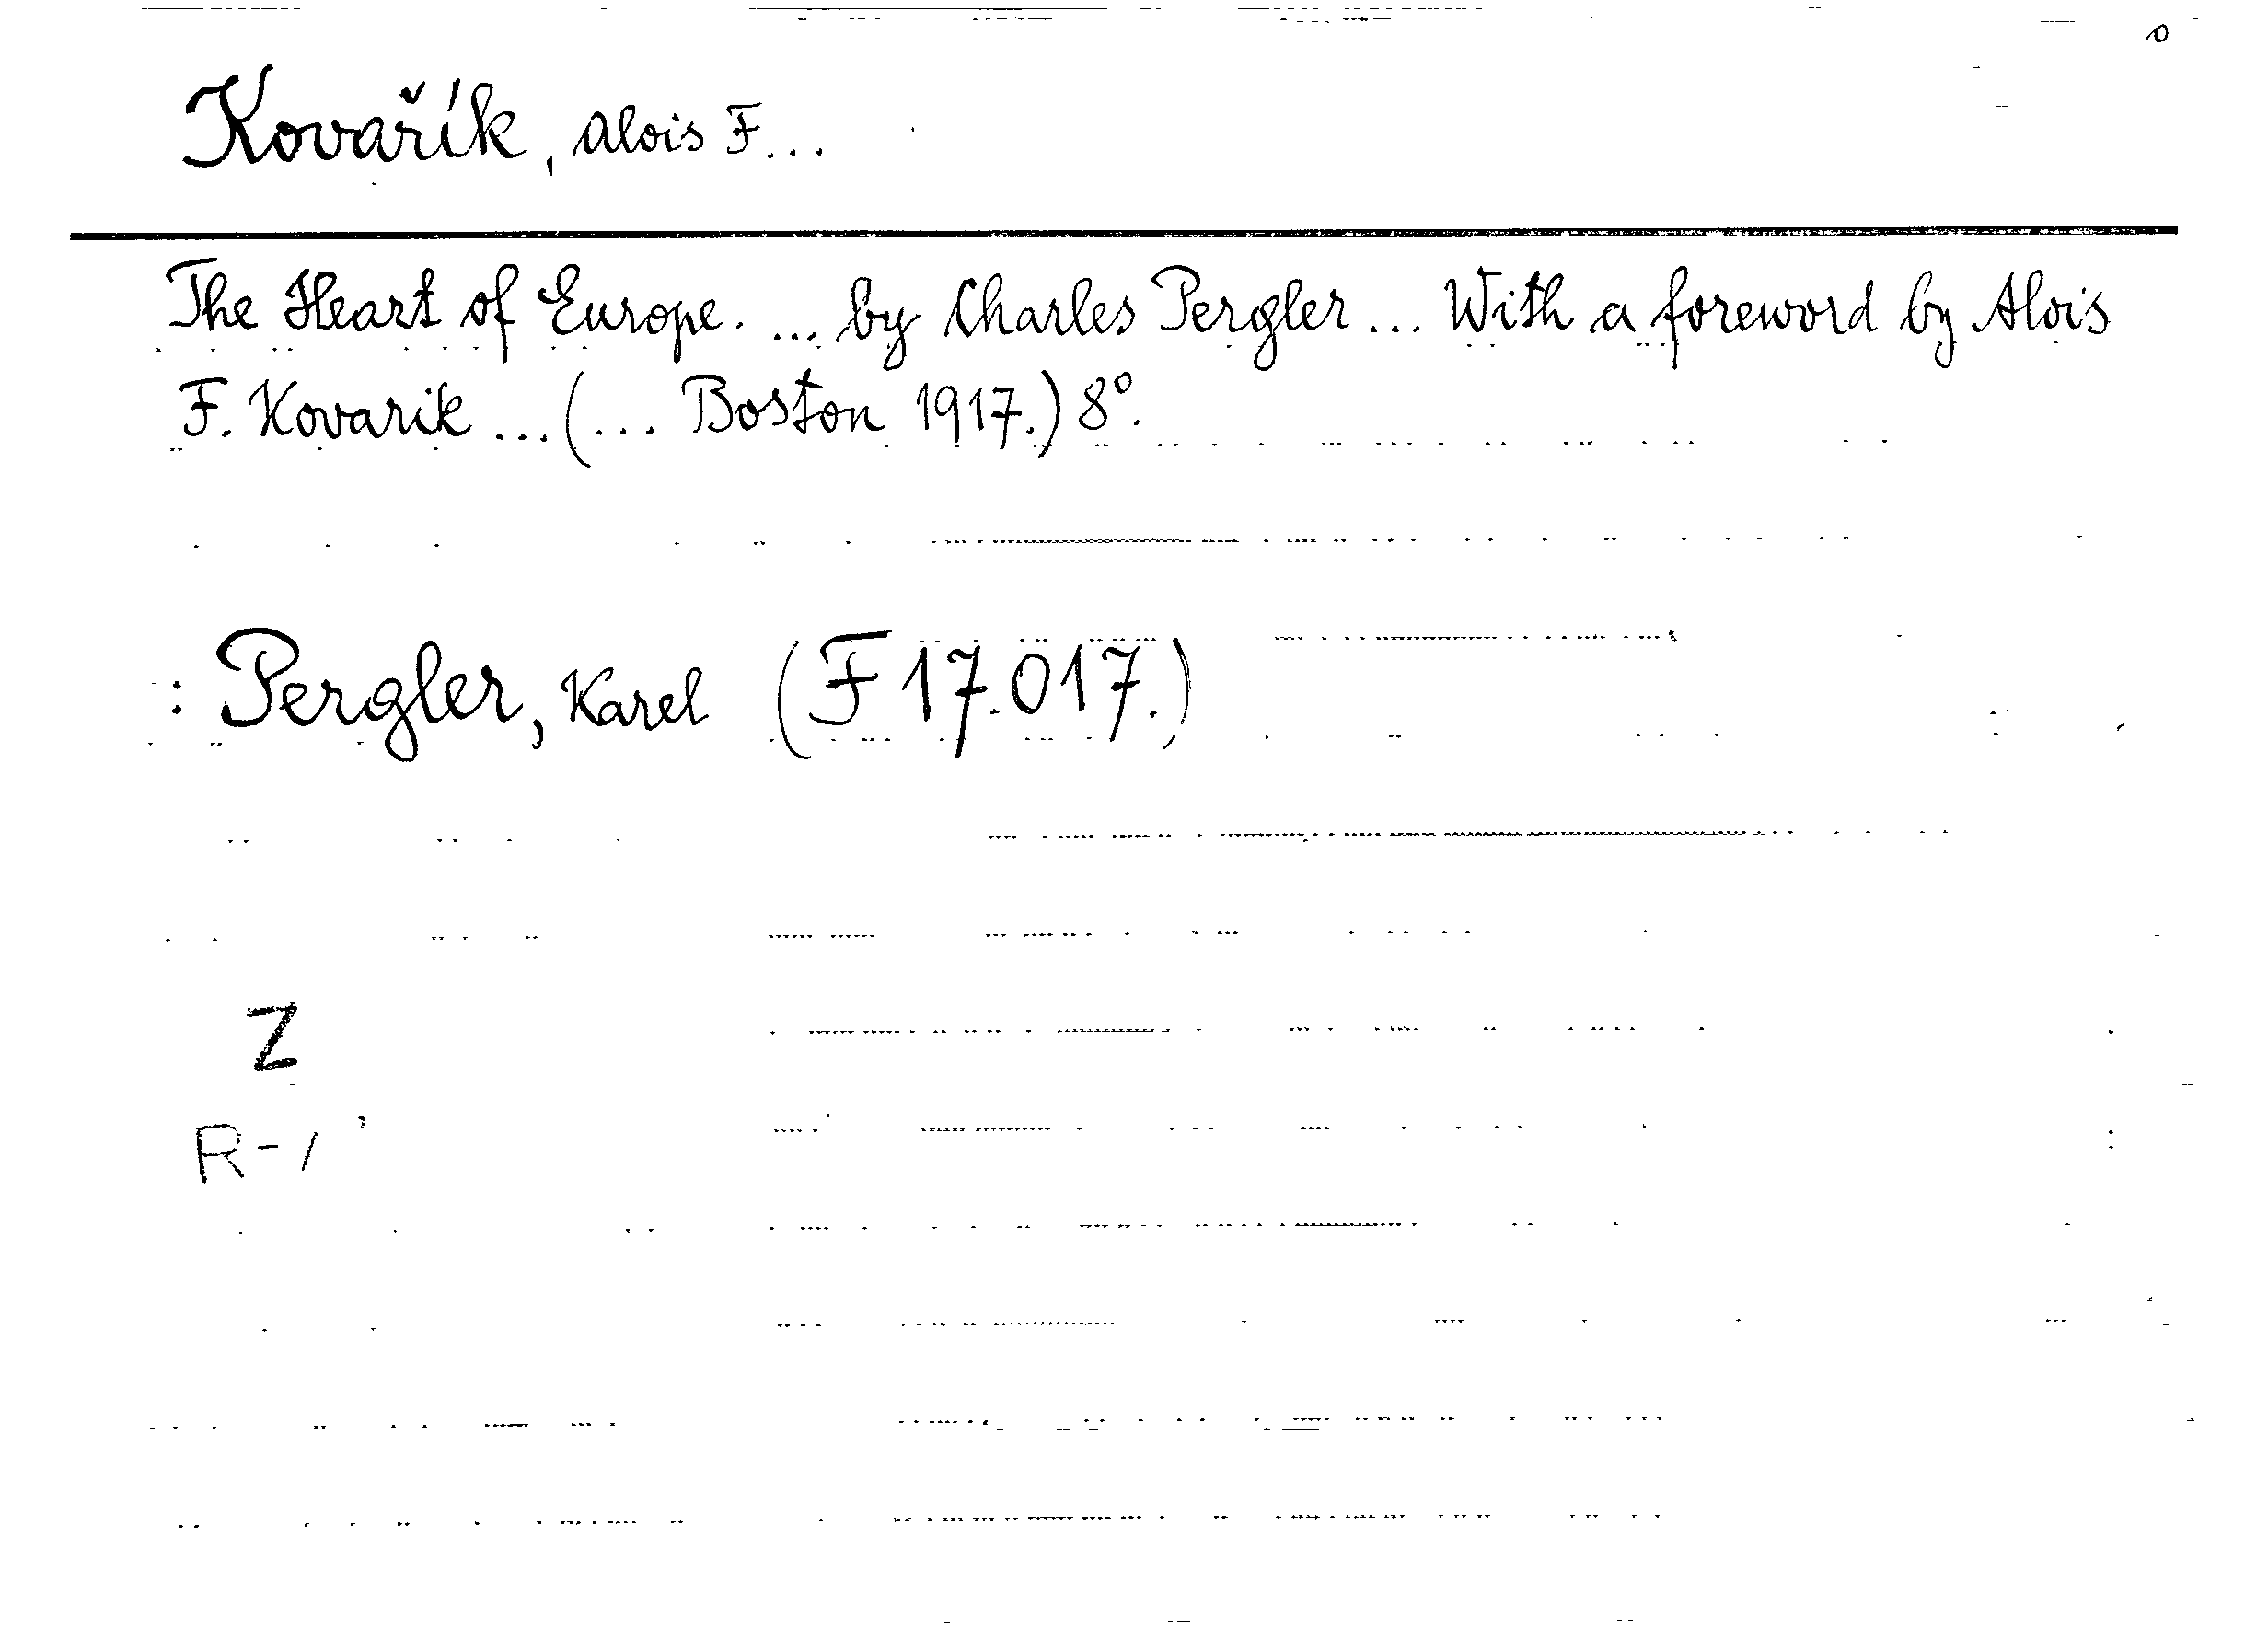 o
Kovařík, Alois F...
The Heart of Europe. ... by Charles Pergler ... With a foreword by Alois
F. Kovarik ... (... Boston 1917.) 8°.
: Pergler, Karel (F 17.017.)
Z
R-1